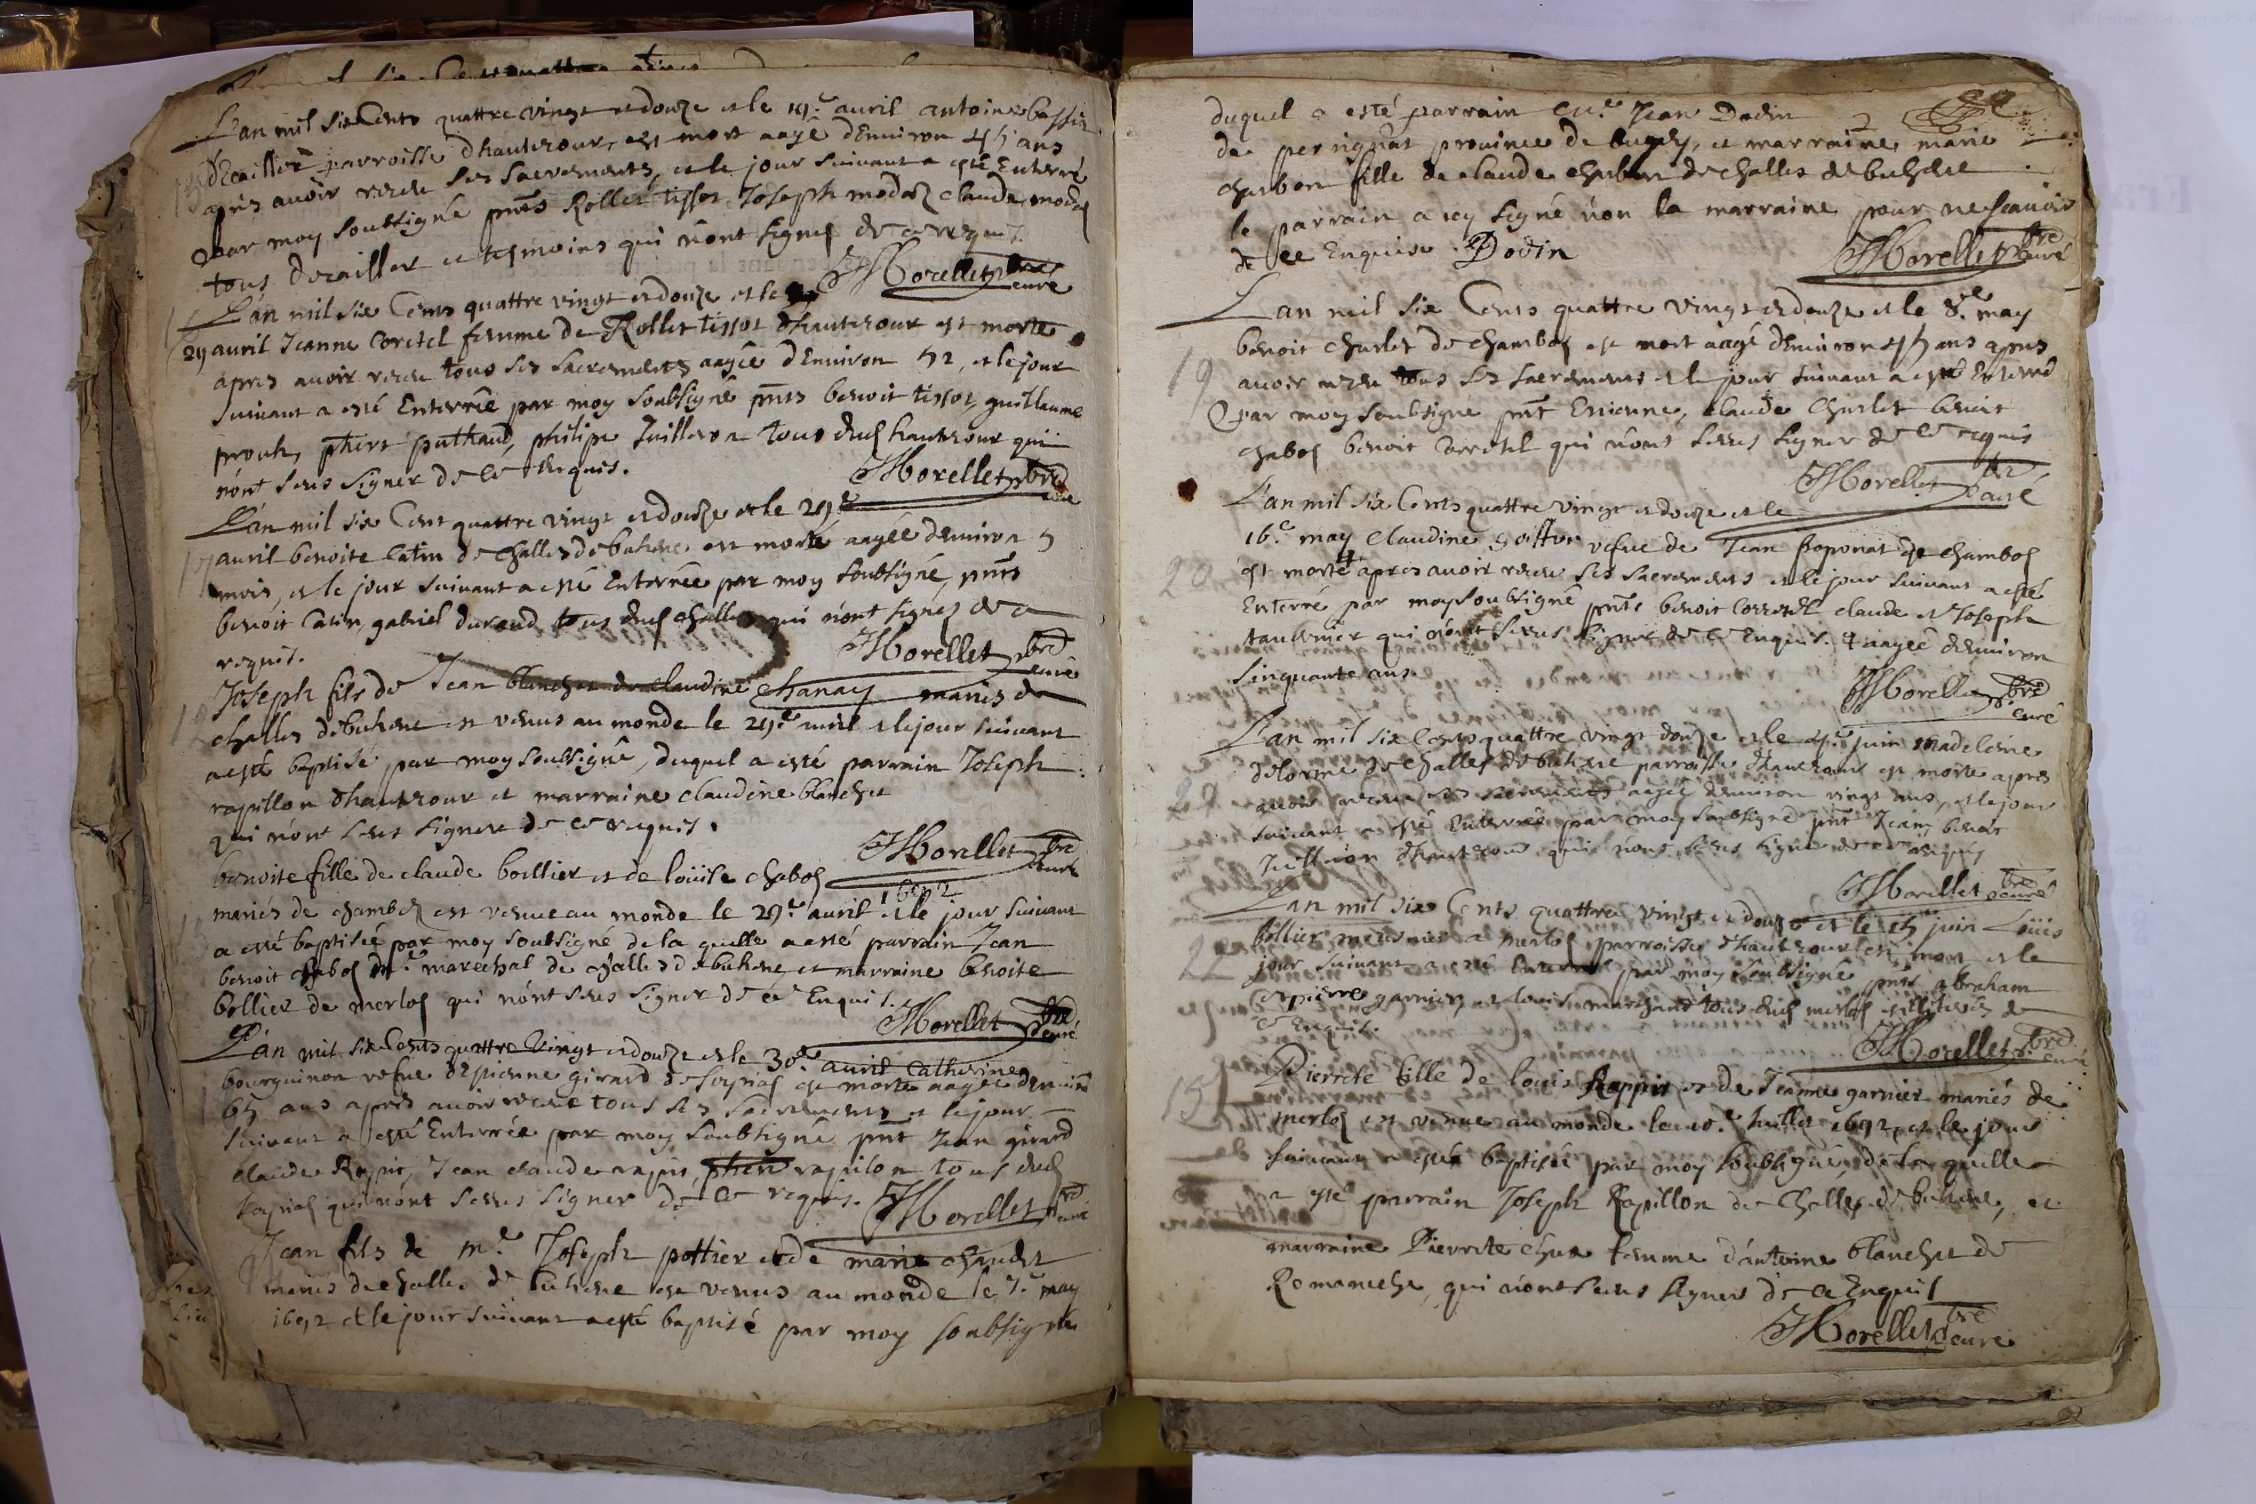 L'an mil six Cents quattre vingt et douze et le 19e avril antoine bassin
decaillier parroisse dhautecour, est mort aagé d'Environ 45 ans
apres avoir receu ses sacrements, et le jour suivant a esté Enterré
par moy soubsigné pnts Rollet tissot Joseph modas claude modas
tous decaillier et tesmoins qui n'ont signé de ce requis.
Morellet pbre curé
L'an mil six Cents quattre vingt et douze et le
29 avril Jeanne Coretel femme de Rollet tissot d'hautecour est morte
apres avoir receu tous ses sacrements aagée d'Environ 52, et le jour
suivant a esté Enterrée par moy soubsigné pnts benoit tissot, guillaume
philipe Juilleron tous dud hautecour qui
n'ont sceus signer de ce Enquis.
Morellet pbre curé
L'an mil six Cent quattre vingt et douze et le 29e
17 avril benoite Catin de challes de buhene est morte aagée denviron 5
mois, et le jour suivant a esté Enterrée par moy soubsigné, pnts
benoit Catin, gabriel durand tous dud challes qui n'ont signes de ce
requis.
Morellet pbre curé
Joseph fils de Jean blanchet et de claudine chanay mariés de
challes de buhene est venus au monde le 29e avril et le jour suivant
a esté baptisé par moy soubsigné, duquel a esté parrain Joseph
rapillon dhautecour et marraine claudine blanchet
qui n'ont sceus signere de ce requis.
Morellet pbre curé
benoite fille de claude bollier et de loüise chabos
1692
mariés de chambos est venue au monde le 29e avril et le jour suivant
a esté baptisée par moy soubsigné de la quelle a esté parrain Jean
benoit chabos me marechal de challes de buhene, et marraine benoite
bollier de merlos qui n'ont sceus signer de ce Enquis.
Morellet pbre curé
L'an mil six Cents quattre Vingt et douze et le 30e avril Catherine
bourguinon vefve d'Etienne girard de soyrias est morte aagée denviron
65 ans apres avoir receu tous ses sacrements et le jour
suivant a esté Enterrée par moy soubsigné pnt Jean girard
claude Rapit, Jean claude rapit, rapilon tous dud
soyrias qui n'ont sceus signer de ce requis.
Morellet pbre curé
Jean fils de me Joseph pottier et de marie chaudet
mariés de challes de buhene est venus au monde le 7e may
1692 et le jour suivant a esté baptisé par moy soubsigné
duquel a esté parrain Jean Dodin
de perignat province de bugey, et marraine marie
charbon fille de claude charbon de challes de buhene
le parrain a icy signé non la marraine pour ne scavoir
de ce Enquise. Dodin
Morellet pbre curé
L'an mil six Cents quattre vingt et douze et le 8e may
19 benoit charlet de chambos est mort aagé d'Environ 45 ans apres
avoir receu tous ses sacrements et le jour suivant a esté Enterré
par moy soubsigné pnt Etienne, claude Charlet benoit
chabos benoit Corretel qui n'ont sceus signer de ce requis
Morellet pbre curé
L'an mil six Cents quattre vingt et douze et le
16e may Claudine goiffon vefve de Jean foponat de chambos
20 est morte apres avoir receu ses sacrements et le jour suivant a esté
Enterré par moy soubsigné pnts benoit Corretel claude et Joseph
tavernier qui n'ont sceus signer de ce Enquis. aagée denviron
sinquante ans.
Morellet pbre curé
L'an mil six Cents quattre vingt douze et le 4e juin Madeleine
delorme de challes de buhene parroisse d'hautecour est morte apres
21 avoir receu ses sacrements aagée denviron vingt ans, et le jour
suivant a esté Enterrée par moy soubsigné pnt Jean, benoit
Juilleron dhautecour qui n'ont sceus signe de ce requis
Morellet pbre curé
L'an mil six Cents quattre vingt et douze et le 15 juin Loüis
bollier meusnier a merlos parroisse dhautecour est mort et le
22 jour suivant a esté Enterré par moy soubsigné pnts abraham
et pierre garnier, et louis marchand tous dud merlos illiterés de
ce Enquis.
Morellet pbre curé
15 Pierrete fille de louis Rappit et de Jeanne garnier mariés de
merlos est venue au monde le 10e Juillet 1692, et le jour
suivant a esté baptisée par moy soubsigné de la quelle
a esté parrain Joseph Rapillon de Challes de buhene, et
marraine Pierrete femme d'antoine blanchet de
Romaneche, qui n'ont sceus signere de ce Enquis
Morellet pbre curé